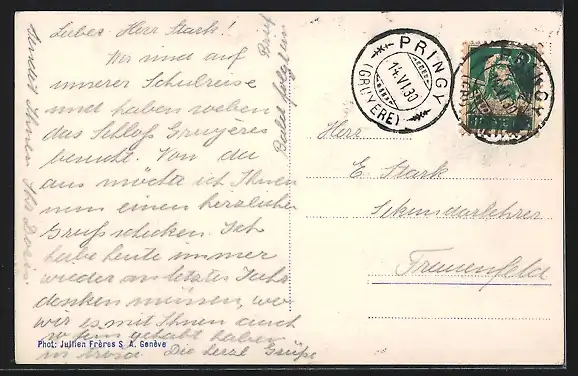 Liebes Herr Stark!
Wir sind auf
unserer Schulreise
und haben soeben
das Schloß Gruyères
besucht. Von da
aus möchte ich Ihnen
nun einen herzlichen
Gruß schicken. Ich
habe heute immer
wieder an letztes Jahr
denken müssen, wo
wir es mit Ihnen auch
so fein gehabt haben
Die herzl. Grüße
sendet Ihnen Ihr
Bald folgt ein Brief
PRINGY
14.VI.30
(GRUYÈRE)
PRINGY
Herr
E. Stark
Sekundarlehrer
Frauenfeld
Phot: Jullien Frères S. A. Genève